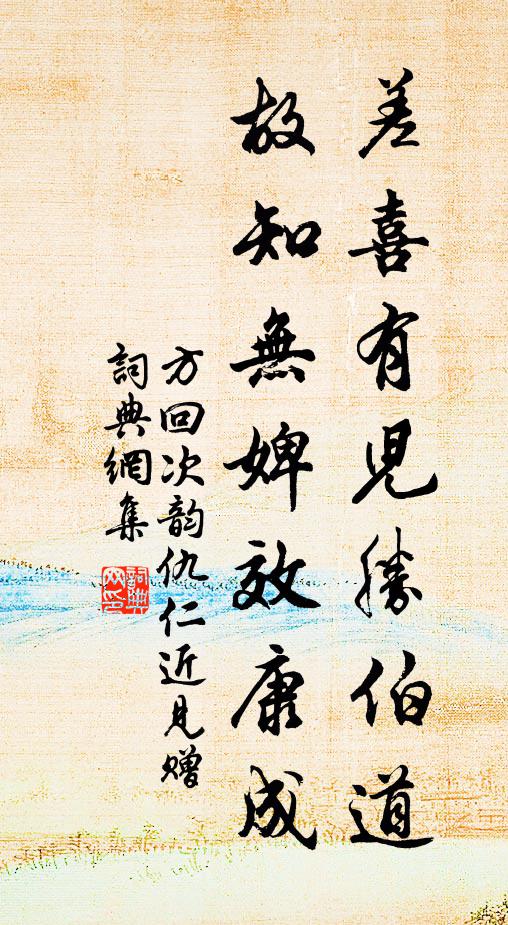 差喜有兒勝伯道
故知無婢效康成
方回次韵仇仁近見贈
詞典網集